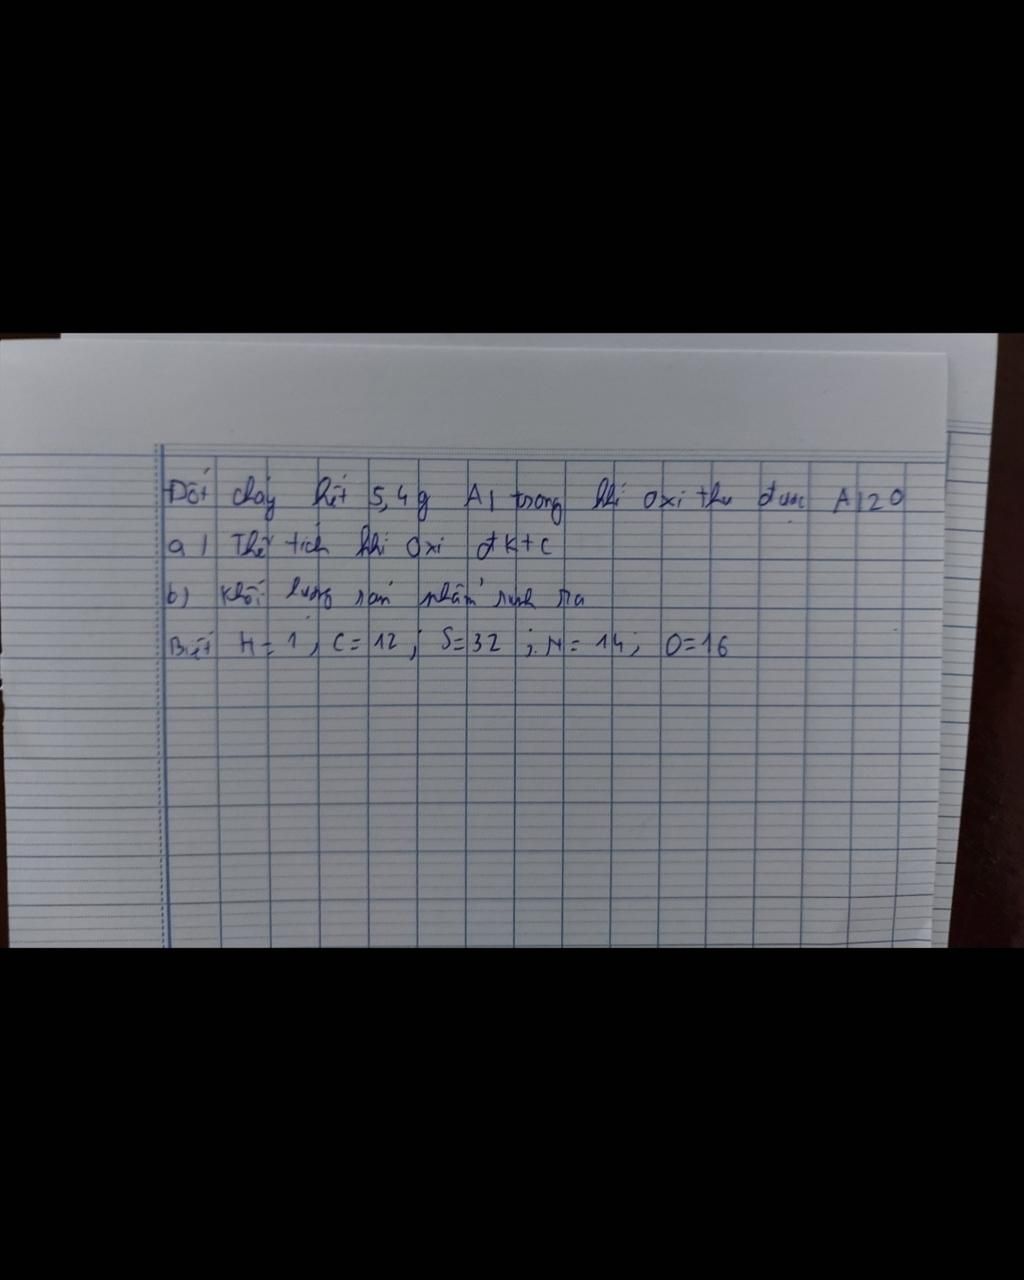 Đốt cháy hết 5,4g Al trong khí oxi thu được Al2O
a) Thể tích khí Oxi đktc
b) Khối lượng sản phẩm sinh ra
Biết H=1; C=12; S=32; N=14; O=16